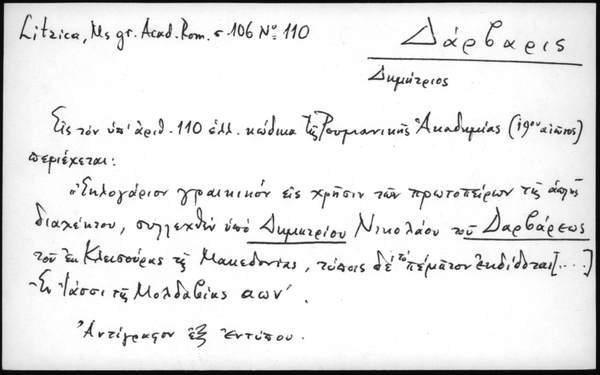 Litzica, Ms gr. Acad. Rom. σ. 106 Nº 110
Δάρβαρις
Δημήτριος
Εἰς τὸν ὑπ' ἀριθ. 110 ἑλλ. κώδικα τῆς Ρουμανικῆς Ἀκαδημίας (19ου αἰῶνος)
περιέχεται:
"Ἐκλογάριον γραικικόν εἰς χρῆσιν τῶν πρωτοπείρων τῆς ἁπλῆς
διαλέκτου, συλλεχθὲν ὑπὸ Δημητρίου Νικολάου τοῦ Δαρβάρεως
τοῦ ἐκ Κλεισούρας τῆς Μακεδονίας, τύποις δὲ τὸ πέμπτον ἐκδίδοται [....]
Ἐν Ἰάσσι τῆς Μολδαβίας αων'.
Ἀντίγραφον ἐξ ἐντύπου.